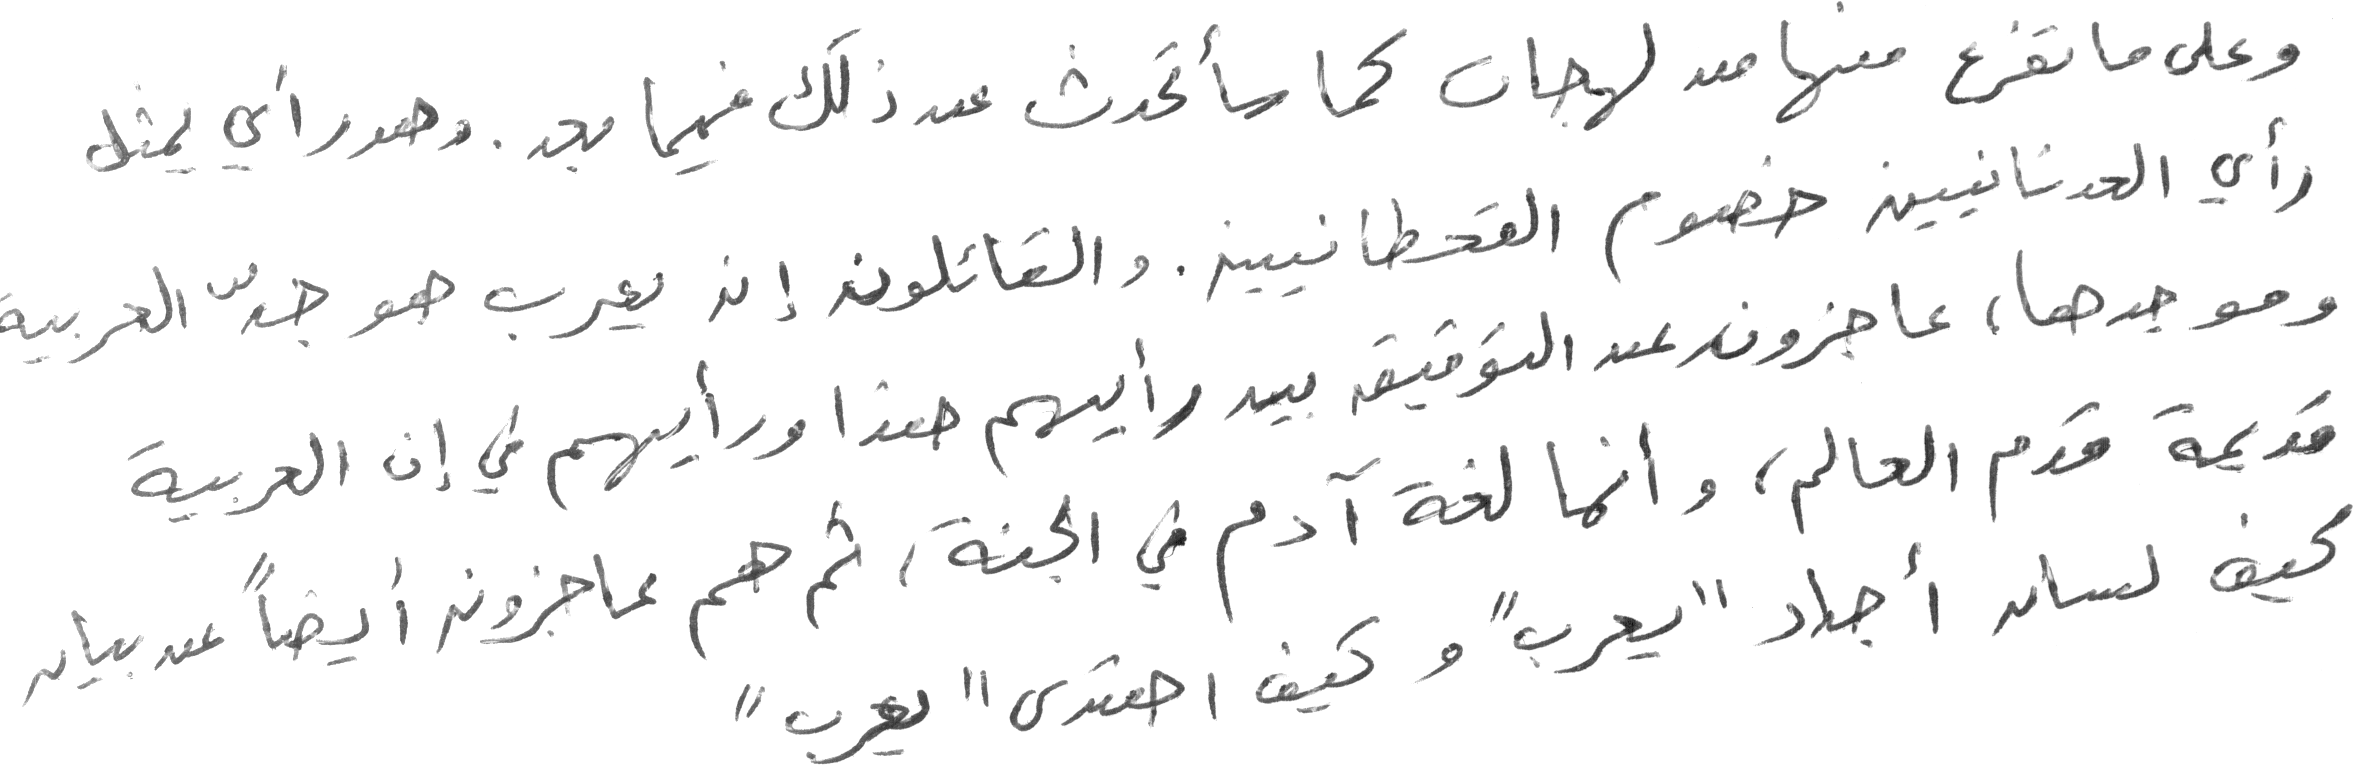 وعلى ما تفرع منها من لهجات كما سأتحدث عن ذلك فيما بعد. وهو رأي يمثل
رأي العدنانيين خصوم القحطانيين. والقائلون إن يعرب هو جدّ العربية
وموجدها، عاجزون عن التوفيق بين رأيهم هذا ورأيهم في إن العربية
قديمة قدم العالم، وأنها لغة آدم في الجنة، ثم هم عاجزون أيضاً عن بيان
كيف لسان أجداد "يعرب" و كيف اهتدى "يعرب"